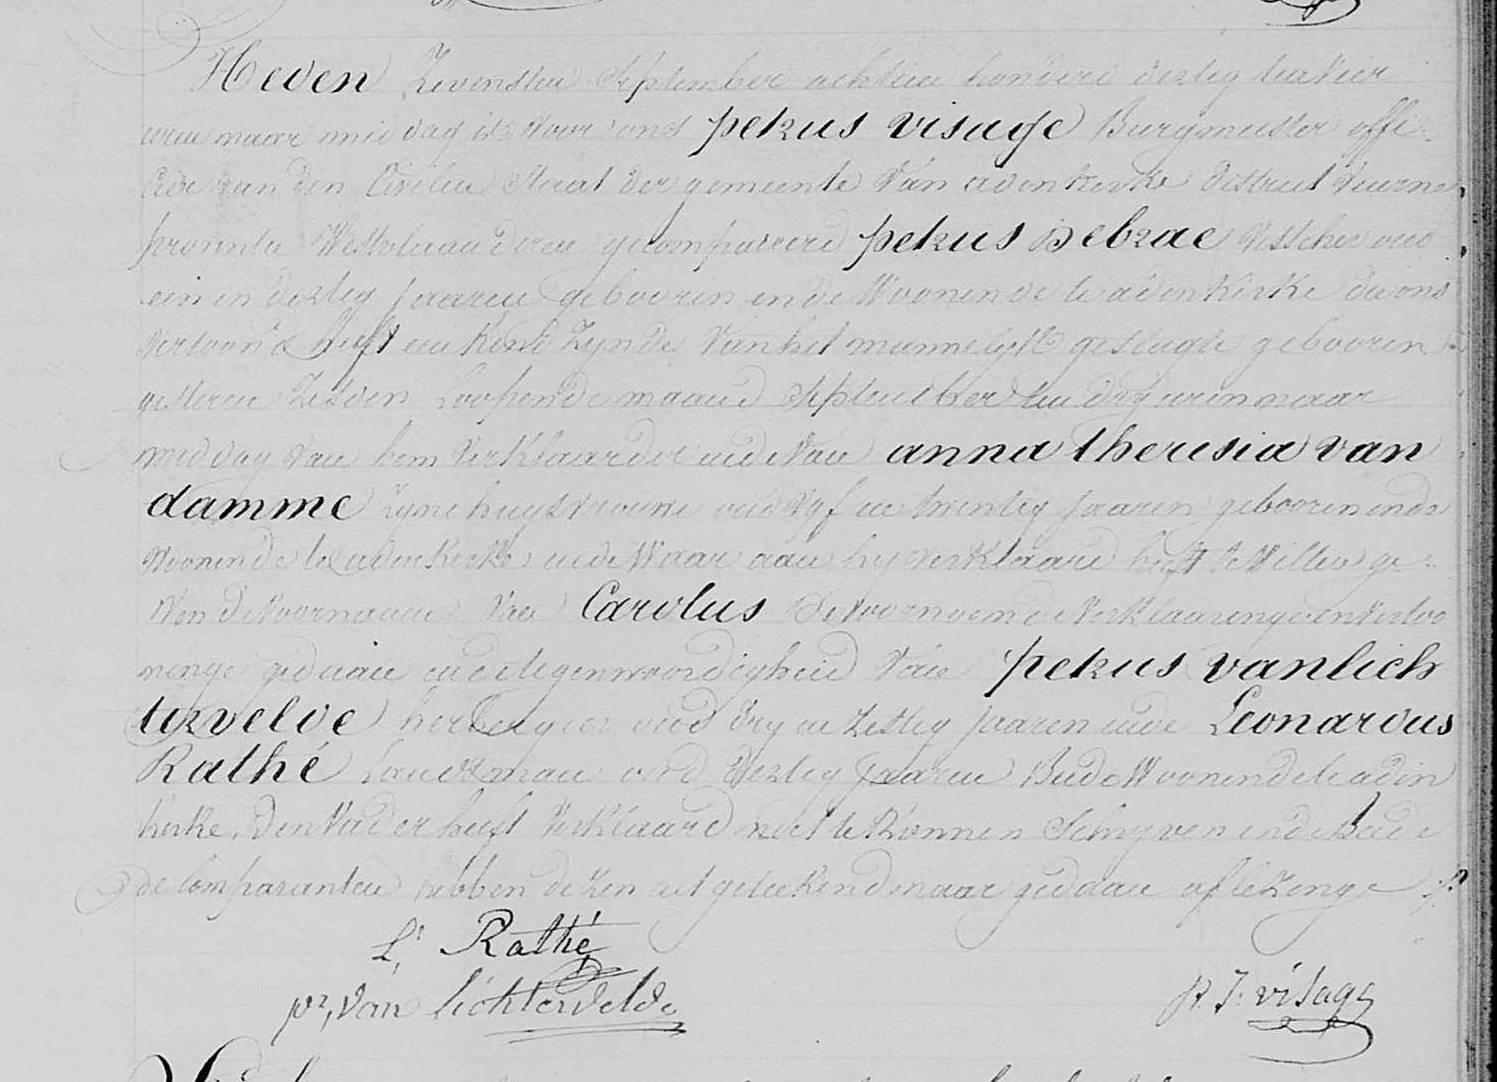 Heden Zevensten September achtien honderd dertig ten vier
uren naar middag is voor ons petrus visage Burgmeester offi-
cier van den Civilen Staat der gemeente Van adenkerke district Veurne
provintie Westvlaanderen gecompareerd petrus Debrae visscher oud
een en dertig jaaren gebooren ende Woonende te adenkerke die ons
Vertoond heeft een kind Zynde Van het mannelyk geslagte gebooren
gisteren Zesden loopende maand September ten dry uren naar
middag van hem Verklaarder ende Van anna theresia van
damme Zyne huysvrouwe oud Vyf en twentig jaaren gebooren ende
Woonende te adenkerke ende Waar aan hy verklaard heeft te Willen ge-
Ven de Voornaam Van Carolus de voornoemde Verklaaringe en Vertoo
ninge gedaan in de tegenwoordigheid Van petrus vanlich
tervelde herbergier oud dry en Zestig jaaren ende Leonardus
Rathé Landsman oud Dertig jaaren Beide Woonende te adin
kerke, Den Vader heeft Verklaard niet te konnen Schryven ende Beide
de comparanten hebben dezen act geteekend naar gedaan aflezinge
L. Rathé
pr, Van lichtervelde
P. J. visage